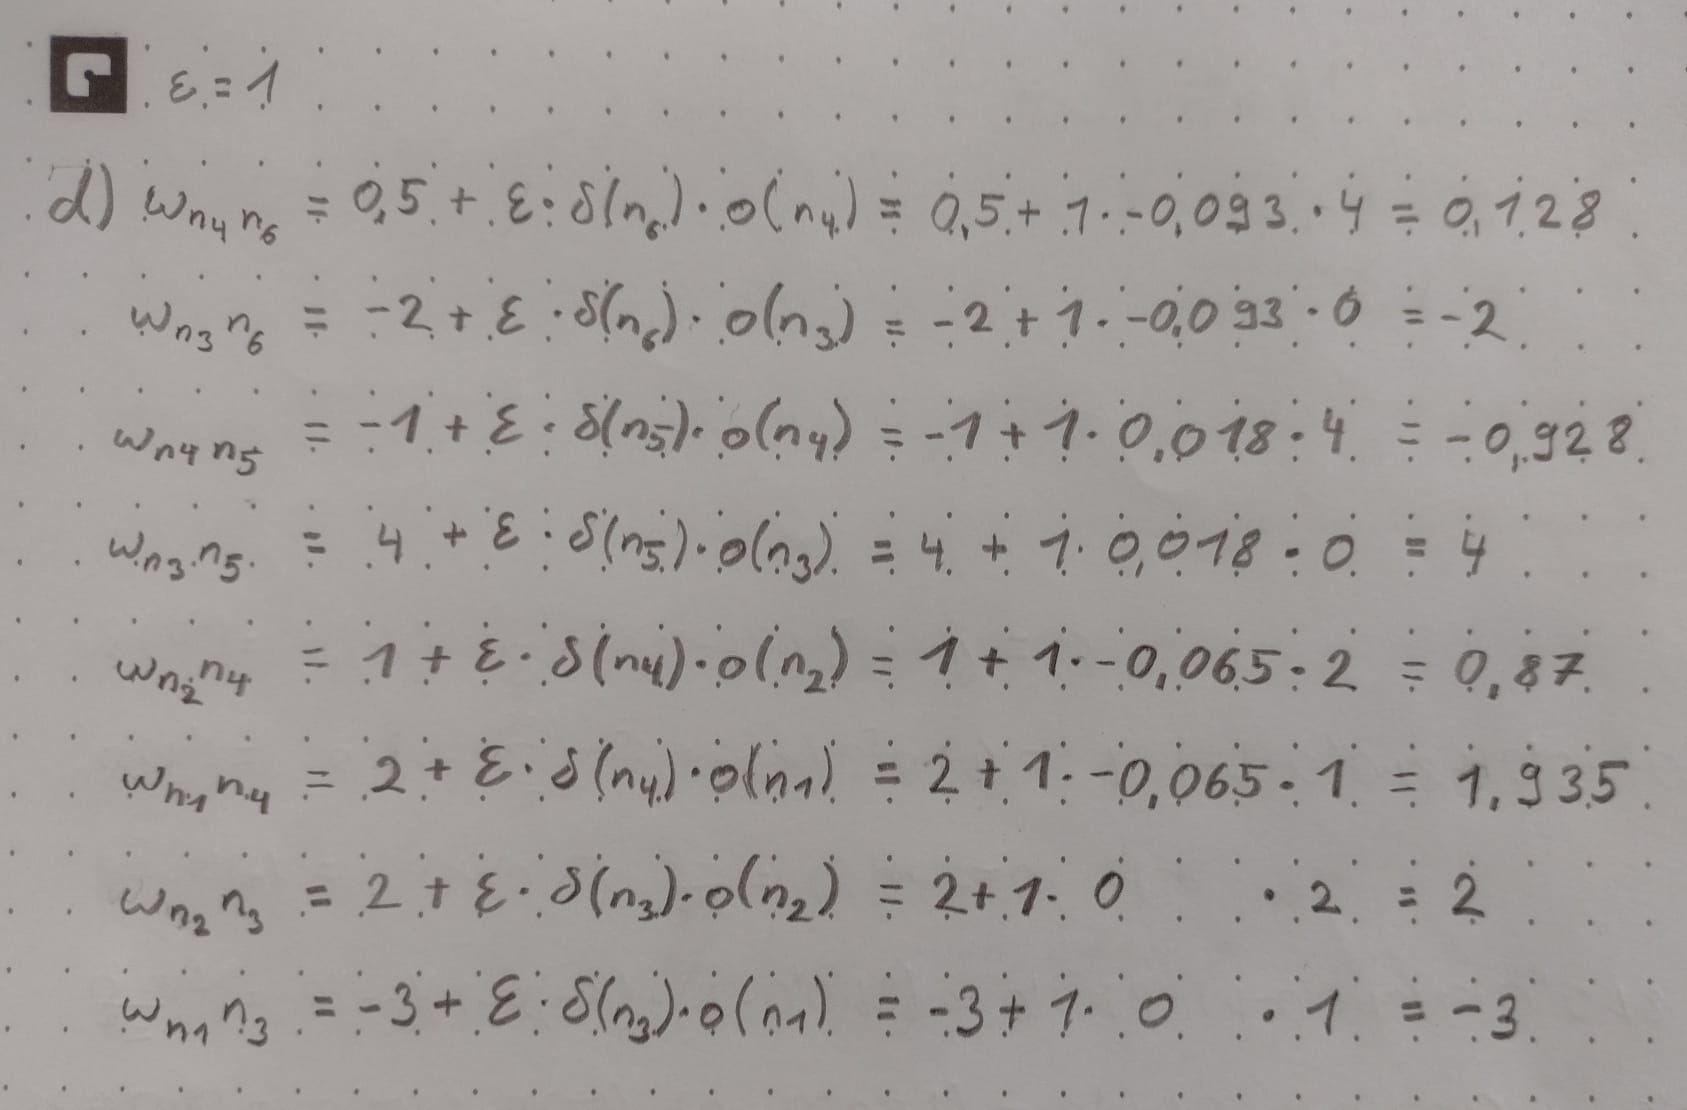 ε = 1
d) w_{n4 n6} = 0,5 + ε · δ(n₆) · o(n₄) = 0,5 + 1 · -0,093 · 4 = 0,128
w_{n3 n6} = -2 + ε · δ(n₆) · o(n₃) = -2 + 1 · -0,093 · 0 = -2
w_{n4 n5} = -1 + ε · δ(n5) · o(n₄) = -1 + 1 · 0,018 · 4 = -0,928
w_{n3 n5} = 4 + ε · δ(n5) · o(n₃) = 4 + 1 · 0,018 · 0 = 4
w_{n2 n4} = 1 + ε · δ(n4) · o(n₂) = 1 + 1 · -0,065 · 2 = 0,87
w_{n1 n4} = 2 + ε · δ(n₄) · o(n₁) = 2 + 1 · -0,065 · 1 = 1,935
w_{n2 n3} = 2 + ε · δ(n₃) · o(n₂) = 2 + 1 · 0 · 2 = 2
w_{n1 n3} = -3 + ε · δ(n₃) · o(n₁) = -3 + 1 · 0 · 1 = -3